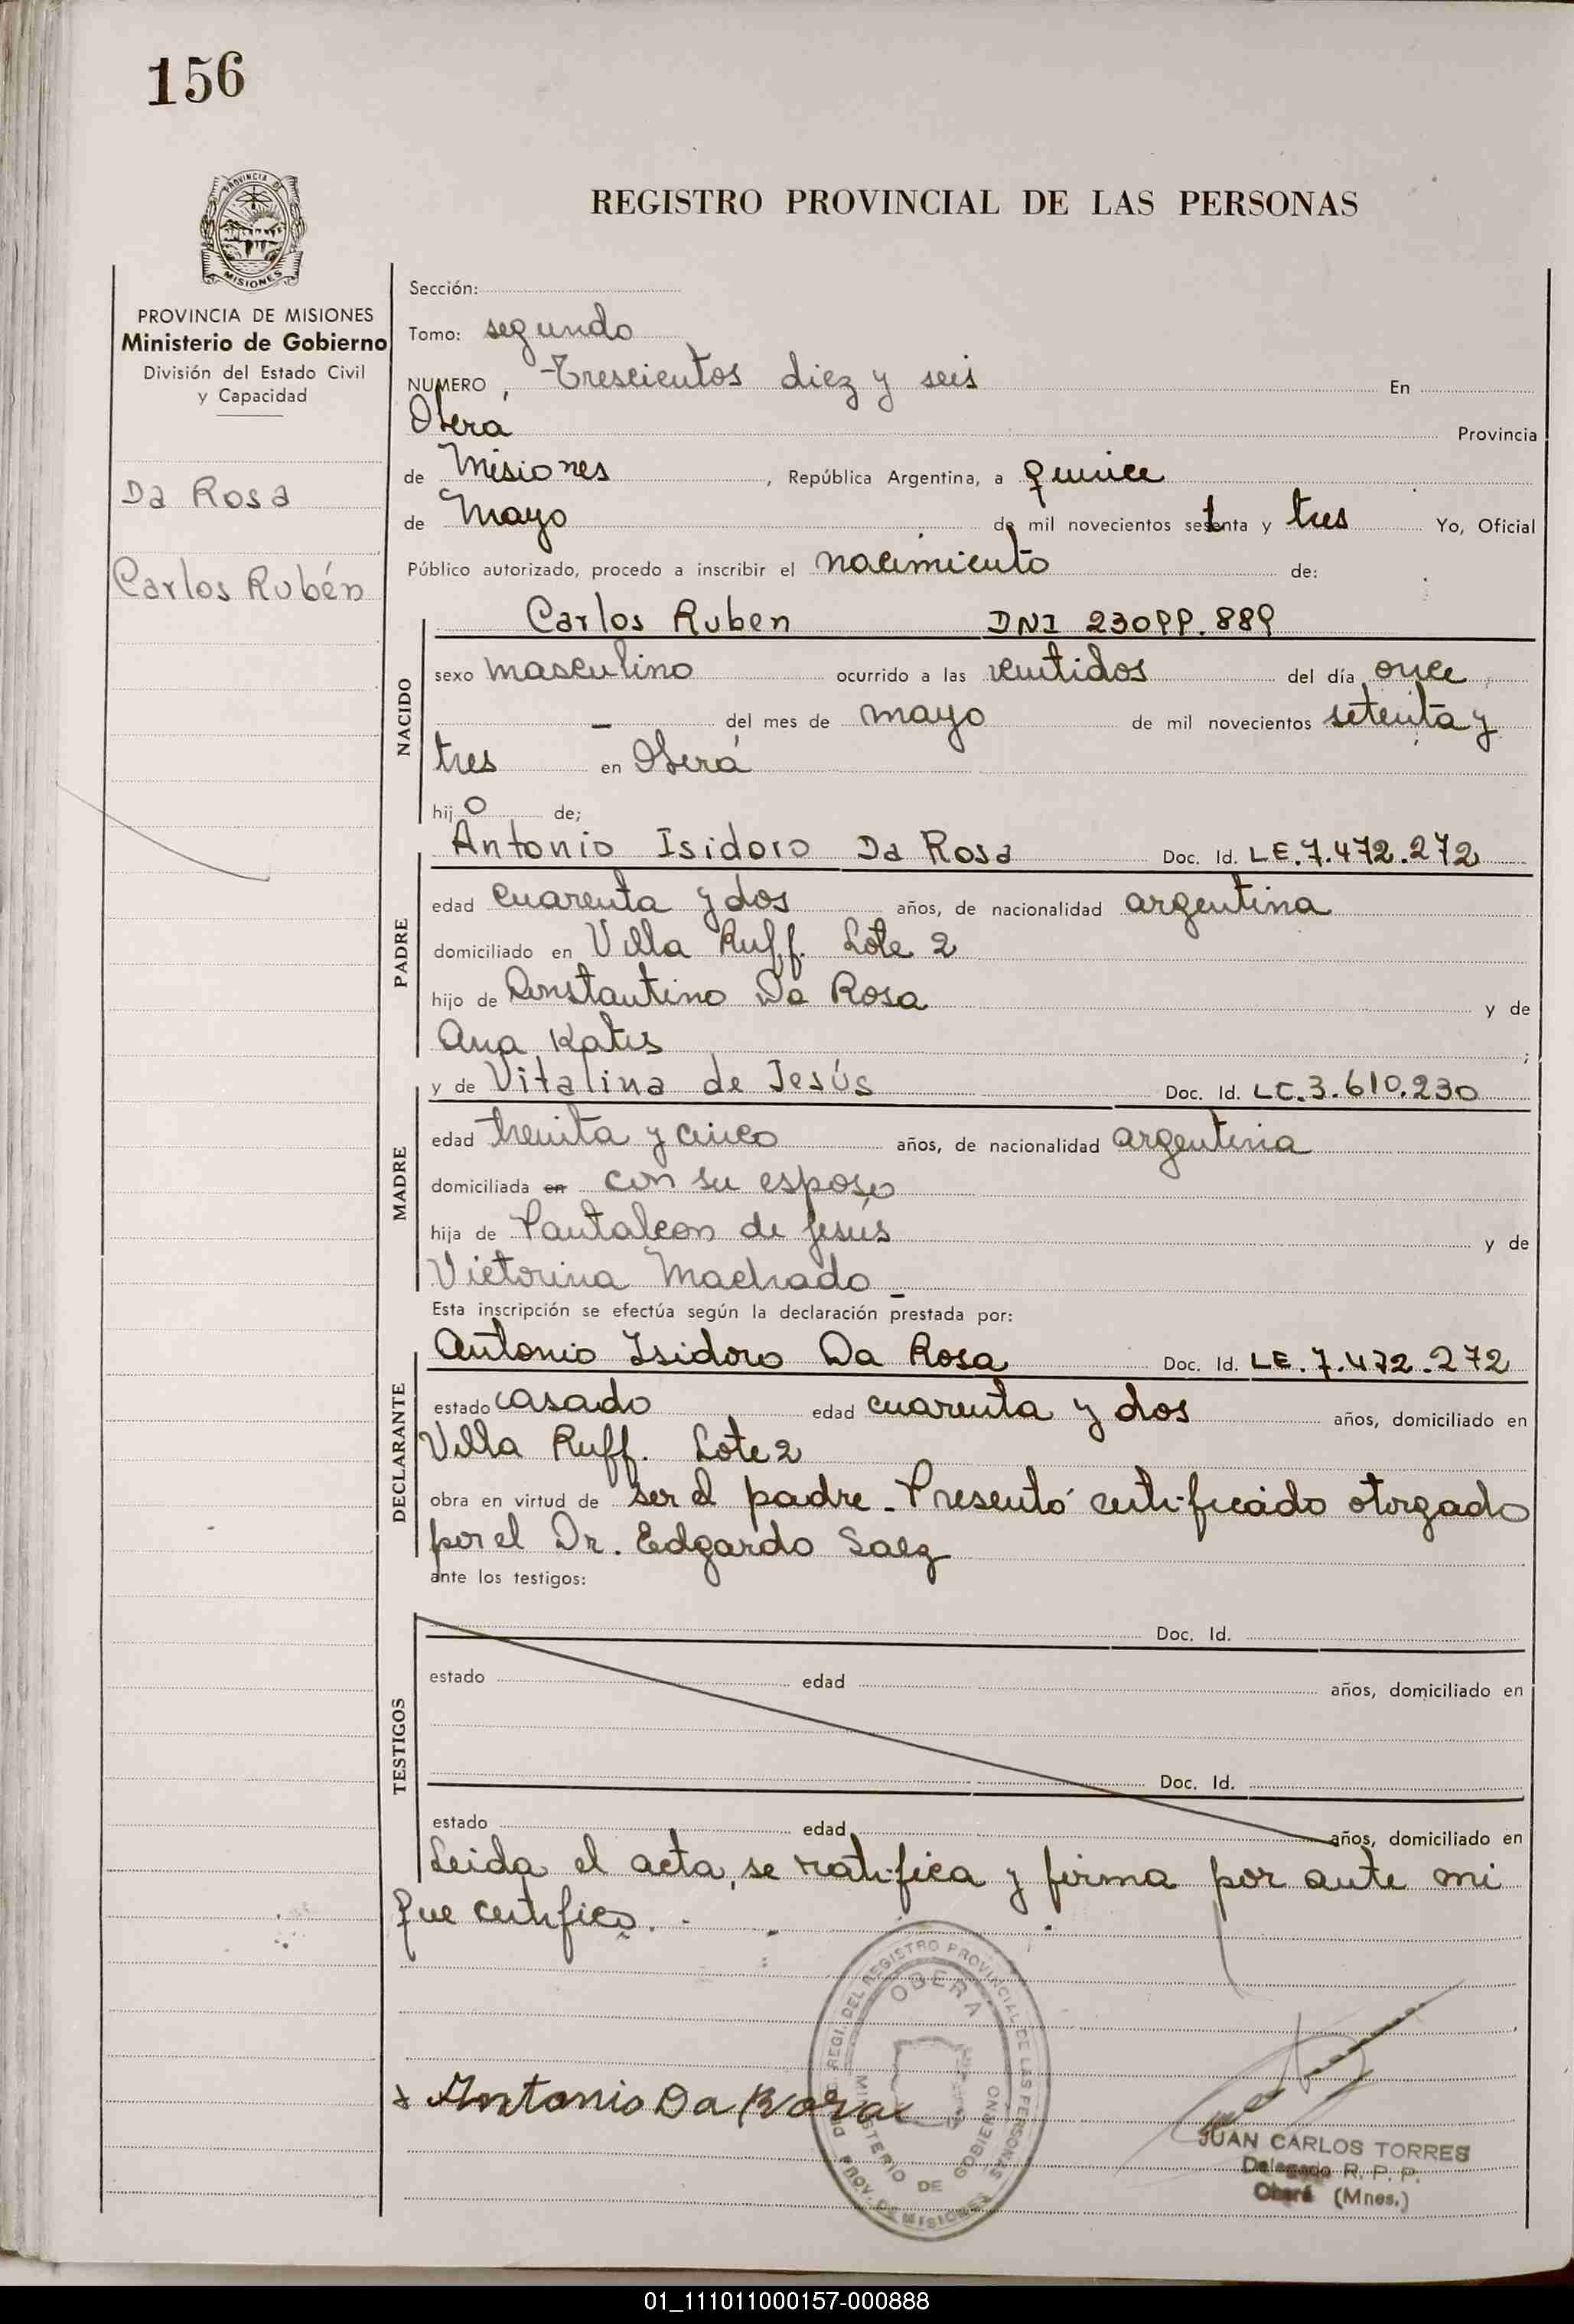 156
PROVINCIA DE
MISIONES
REGISTRO PROVINCIAL DE LAS PERSONAS
PROVINCIA DE MISIONES
Ministerio de Gobierno
División del Estado Civil
y Capacidad
Da Rosa
Carlos Rubén
Sección:
Tomo: segundo
NUMERO Trescientos diez y seis En
Oberá Provincia
de Misiones, República Argentina, a quince
de Mayo de mil novecientos setenta y tres Yo, Oficial
Público autorizado, procedo a inscribir el nacimiento de:
NACIDO
Carlos Ruben DNI 23099.889
sexo masculino ocurrido a las veintidos del día once
— del mes de mayo de mil novecientos setenta y
tres en Oberá
hijo de;
PADRE
Antonio Isidoro Da Rosa Doc. Id. LE.7.472.272
edad cuarenta y dos años, de nacionalidad argentina
domiciliado en Villa Ruff. Lote 2
hijo de Constantino Da Rosa y de
Ana Katis ;
MADRE
y de Vitalina de Jesús Doc. Id. LC.3.610.230
edad treinta y cinco años, de nacionalidad argentina
domiciliada en con su esposo
hija de Pantaleon de Jesús y de
Victorina Machado _
Esta inscripción se efectúa según la declaración prestada por:
DECLARANTE
Antonio Isidoro Da Rosa Doc. Id. LE.7.472.272
estado casado edad cuarenta y dos años, domiciliado en
Villa Ruff. Lote 2
obra en virtud de ser el padre - Presentó certificado otorgado
por el Dr. Edgardo Saez
ante los testigos:
TESTIGOS
Doc. Id.
estado edad años, domiciliado en
Doc. Id.
estado edad años, domiciliado en
Leida el acta, se ratifica y firma por ante mi
que certifico. -
Antonio Da Rosa
DEL REGISTRO PROVINCIAL DE LAS PERSONAS
OBERA
MINISTERIO DE GOBIERNO
PROV. DE MISIONES
JUAN CARLOS TORRES
Delegado R. P. P.
Oberá (Mnes.)
01_111011000157-000888